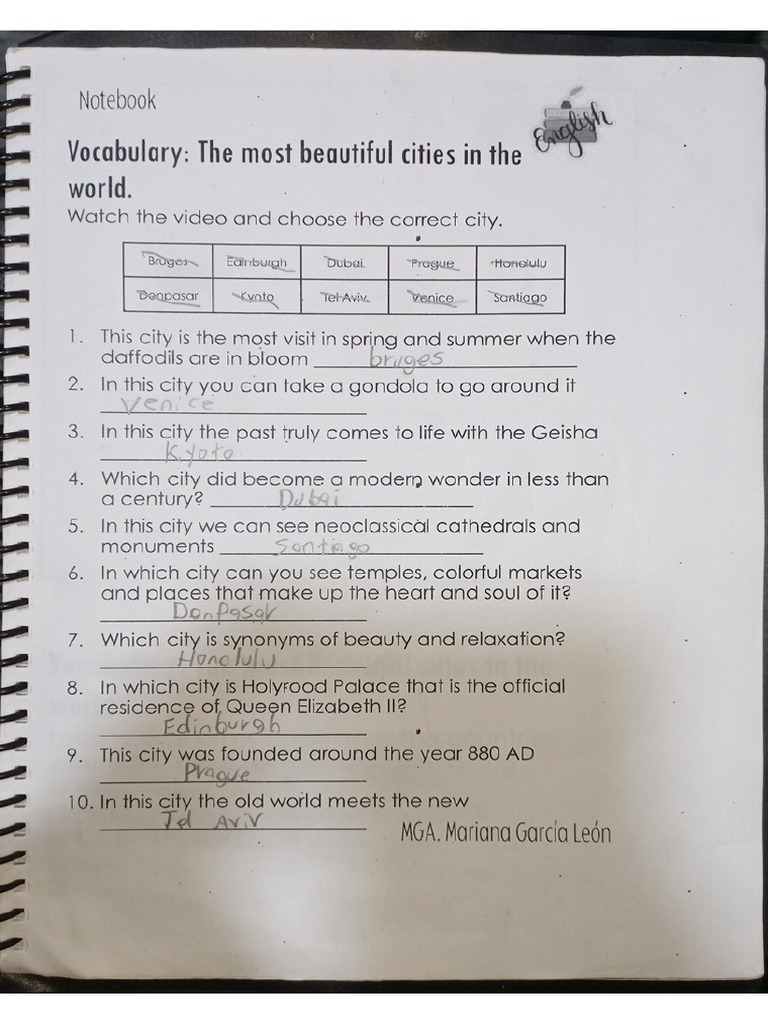 Notebook
English
Vocabulary: The most beautiful cities in the
world.
Watch the video and choose the correct city.
Bruges Edinburgh Dubai Prague Honolulu
Denpasar Kyoto Tel Aviv Venice Santiago
1. This city is the most visit in spring and summer when the
daffodils are in bloom bruges
2. In this city you can take a gondola to go around it
Venice
3. In this city the past truly comes to life with the Geisha
Kyoto
4. Which city did become a modern wonder in less than
a century? Dubai
5. In this city we can see neoclassical cathedrals and
monuments Santiago
6. In which city can you see temples, colorful markets
and places that make up the heart and soul of it?
Denpasar
7. Which city is synonyms of beauty and relaxation?
Honolulu
8. In which city is Holyrood Palace that is the official
residence of Queen Elizabeth II?
Edinburgh
9. This city was founded around the year 880 AD
Prague
10. In this city the old world meets the new
Tel Aviv
MGA. Mariana García León